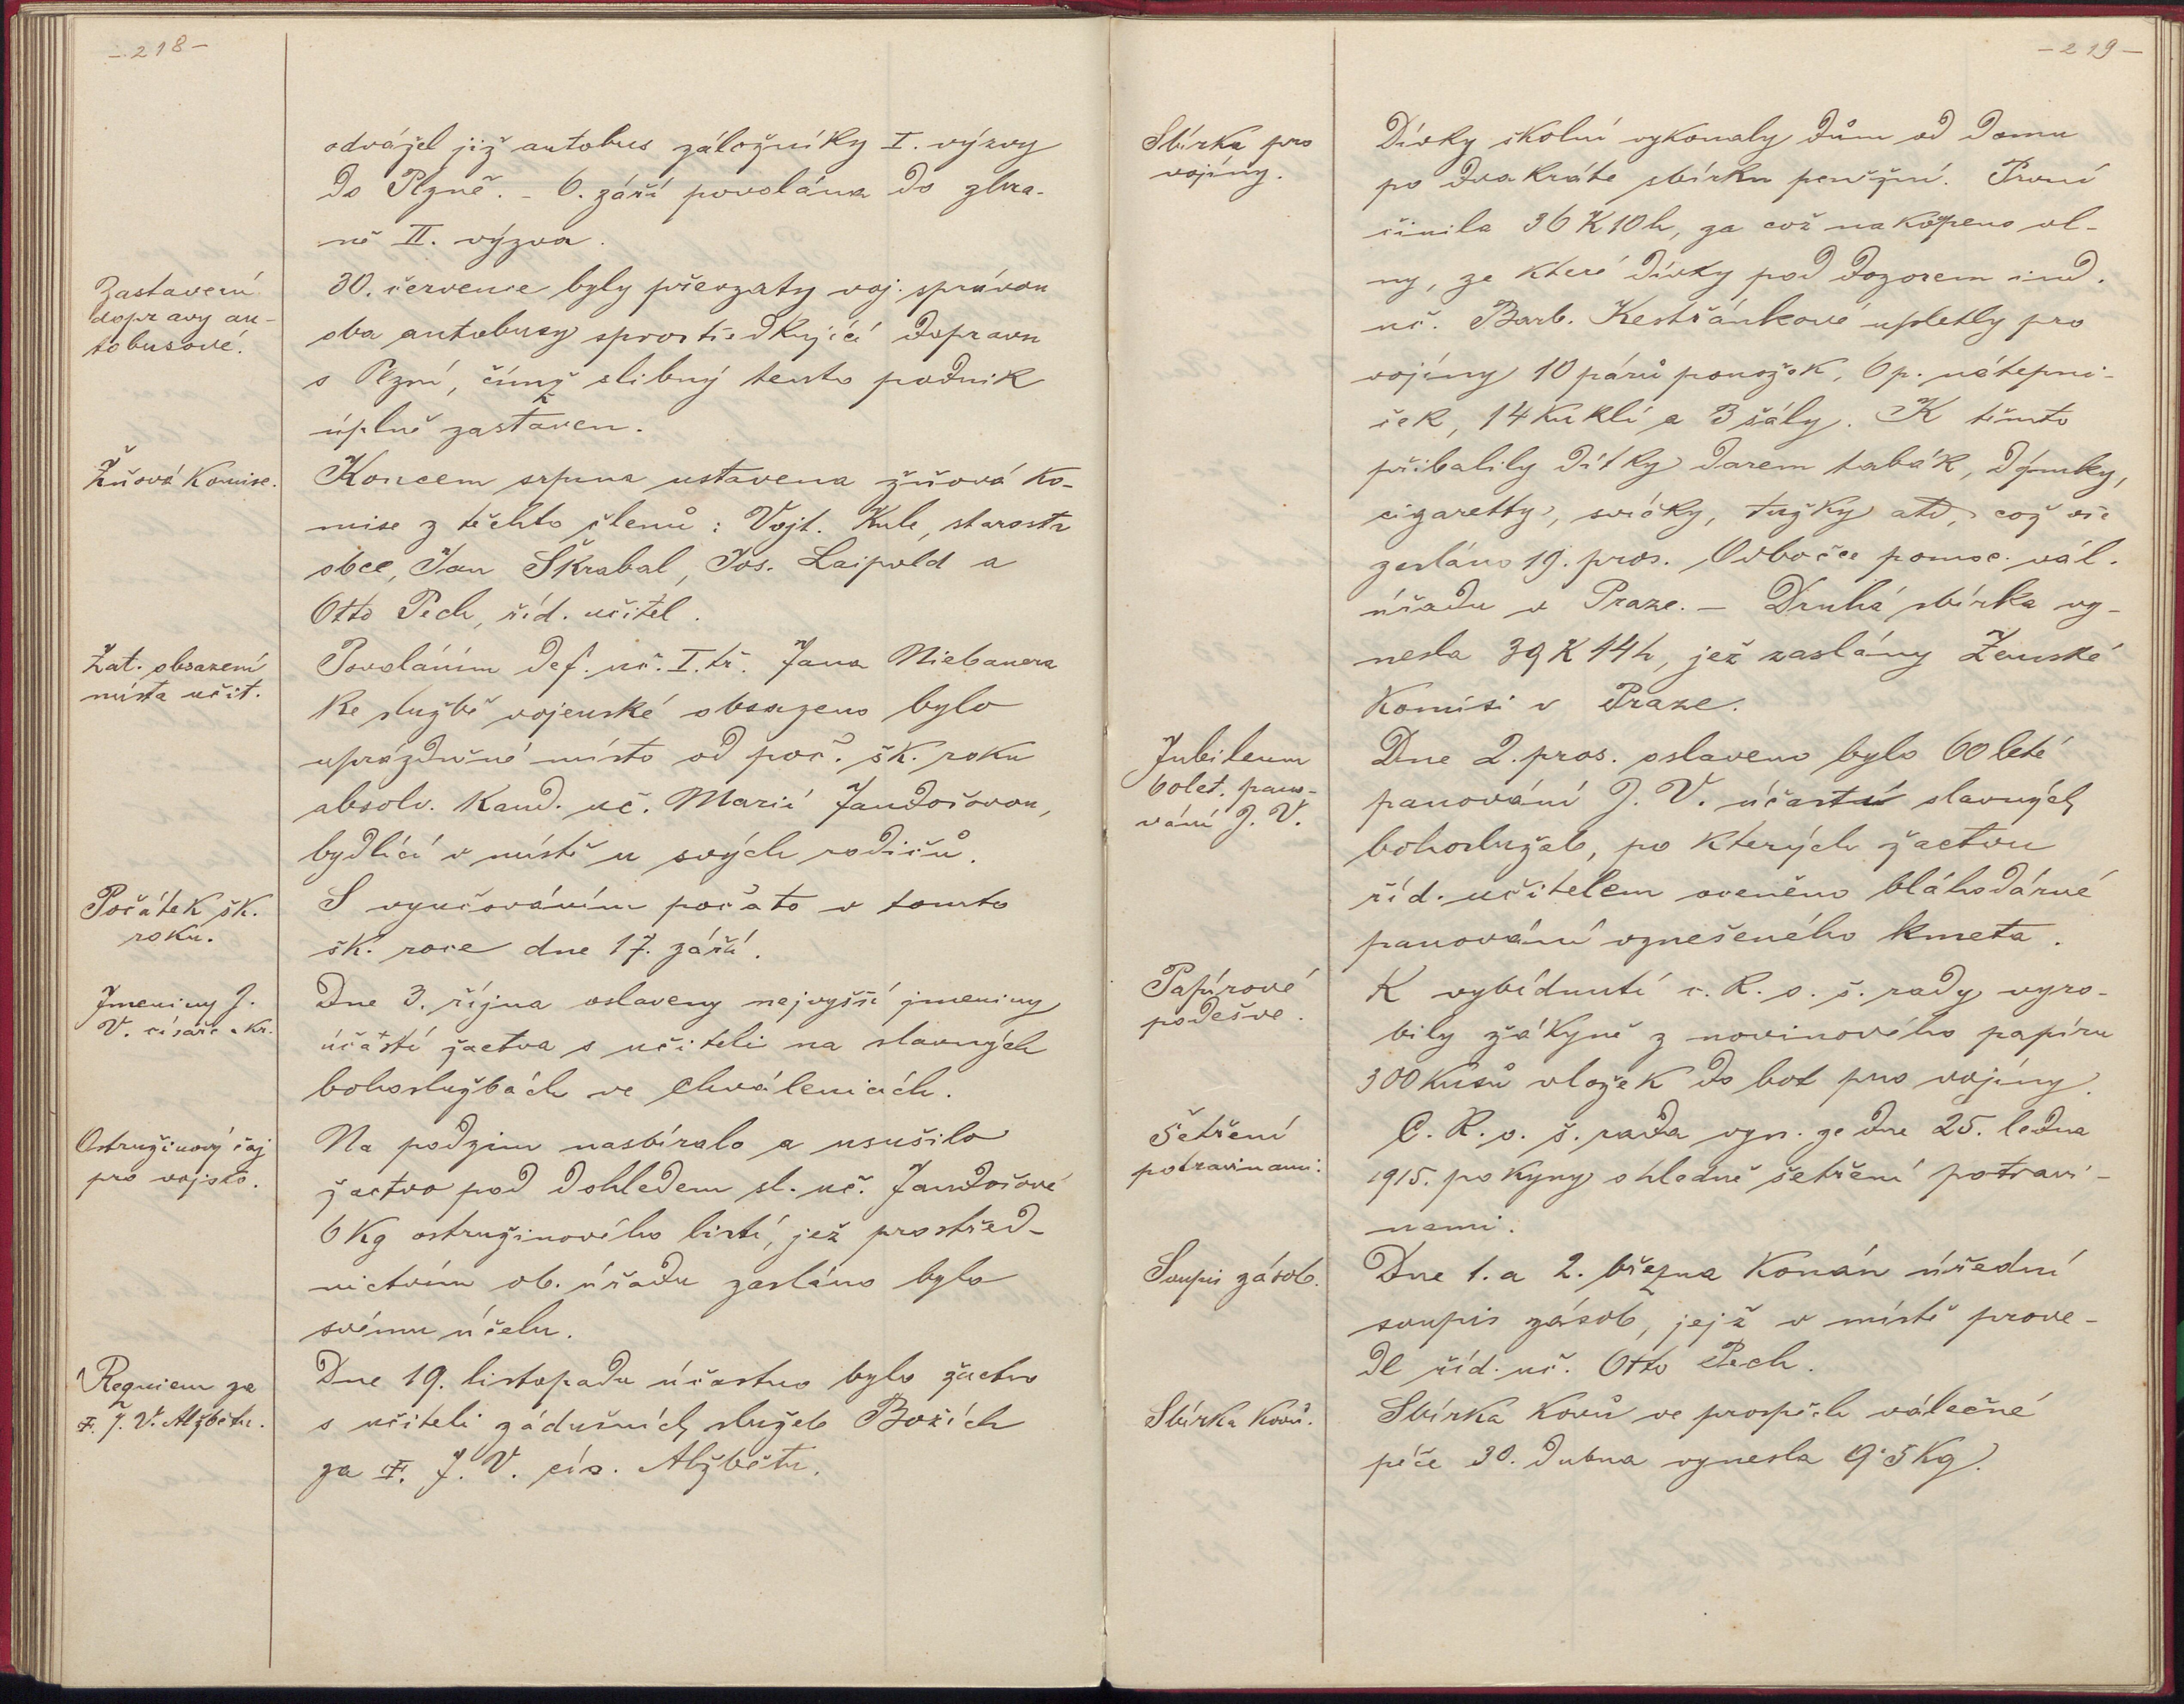 -218-
odvážel již autobus záložníky I. výzvy
do Plzně. - 6. září povolána do zbra-
ně II. výzva.
Zastavení
dopravy au-
tobusové.
30. července byly převzaty voj. správou
oba autobusy sprostředkující dopravu
s Plzní, čímž slibný tento podnik
úplně zastaven.
Žňová komise.
Koncem srpna ustavena žňová ko-
mise z těchto členů: Vojt. Kub, starosta
obce, Jan Škrabal, Jos. Laipold a
Otto Pech, říd. učitel.
Zat. obsazení
místa učit.
Povoláním def. uč. I. tř. Jana Niebauera
ke službě vojenské obsazeno bylo
uprázdněné místo od poč. šk. roku
absolv. kand. uč. Marií Jandošovou,
bydlící v místě u svých rodičů.
Počátek šk.
roku.
S vyučováním počato v tomto
šk. roce dne 17. září.
Jmeniny J.
V. císaře a kr.
Dne 3. října oslaveny nejvyšší jmeniny
účastí žactva s učiteli na slavných
bohoslužbách ve Chválenicích.
Ostružinový čaj
pro vojsko.
Na podzim nasbíralo a usušilo
žactvo pod dohledem sl. uč. Jandošové
6 kg ostružinového listí, jež prostřed-
nictvím ob. úřadu zasláno bylo
svému účelu.
Requiem za
✝. J. V. Alžbětu.
Dne 19. listopadu účastno bylo žactvo
s učiteli zádušních služeb Božích
za ✝. J. V. cís. Alžbětu.
-219-
Sbírka pro
vojíny.
Dívky školní vykonaly dům od domu
po dvakráte sbírku peněžní. První
činila 36 K 10 h, za což nakoupeno vl-
ny, ze které dívky pod dozorem ind.
uč. Barb. Kestřánkové upletly pro
vojíny 10 párů ponožek, 6 p. nátepni-
ček, 14 kuklí a 3 šály. K těmto
přibalily dítky darem tabák, dýmky,
cigaretty, svíčky, tužky atd, což vše
zesláno 19. pros. Odbočce pomoc. vál.
úřadu v Praze. - Druhá sbírka vy-
nesla 39 K 14 h, jež zaslány Ženské
komisi v Praze.
Jubileum
60let. pano-
vání J. V.
Dne 2. pros. oslaveno bylo 60 leté
panování J. V. účastí slavných
bohoslužeb, po kterých žactvu
říd. učitelem oceněno bláhodárné
panování vznešeného kmeta.
Papírové
podešve.
K vybídnutí c. k. o. š. rady vyro-
bily žákyně z novinového papíru
300 kusů vložek do bot pro vojíny.
Šetření
potravinami.
C. k. o. š. rada vyn. ze dne 25. ledna
1915. pokyny ohledně šetření potravi-
nami.
Soupis zásob.
Dne 1. a 2. března konán úřední
soupis zásob, jejž v místě prove-
dl říd. uč. Otto Pech.
Sbírka kovů.
Sbírka kovů ve prospěch válečné
péče 30. dubna vynesla 9·5 kg.